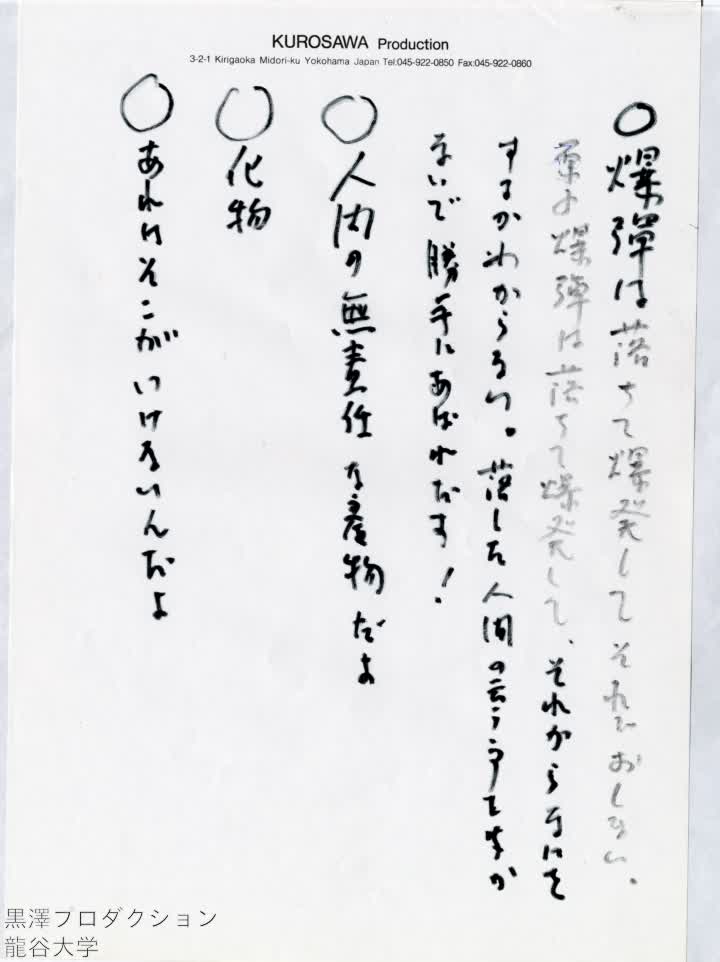 KUROSAWA Production
3-2-1 Kirigaoka Midori-ku Yokohama Japan Tel:045-922-0850 Fax:045-922-0860
○爆弾は落ちて爆発してそれでおしまい。
原子爆弾は落ちて爆発して、それからなにを
するかわからない。落した人間の云う事をきか
ないで勝手にあばれだす!
○人間の無責任な産物だよ
○化物
○あれはそこがいけないんだよ
黒澤プロダクション
龍谷大学